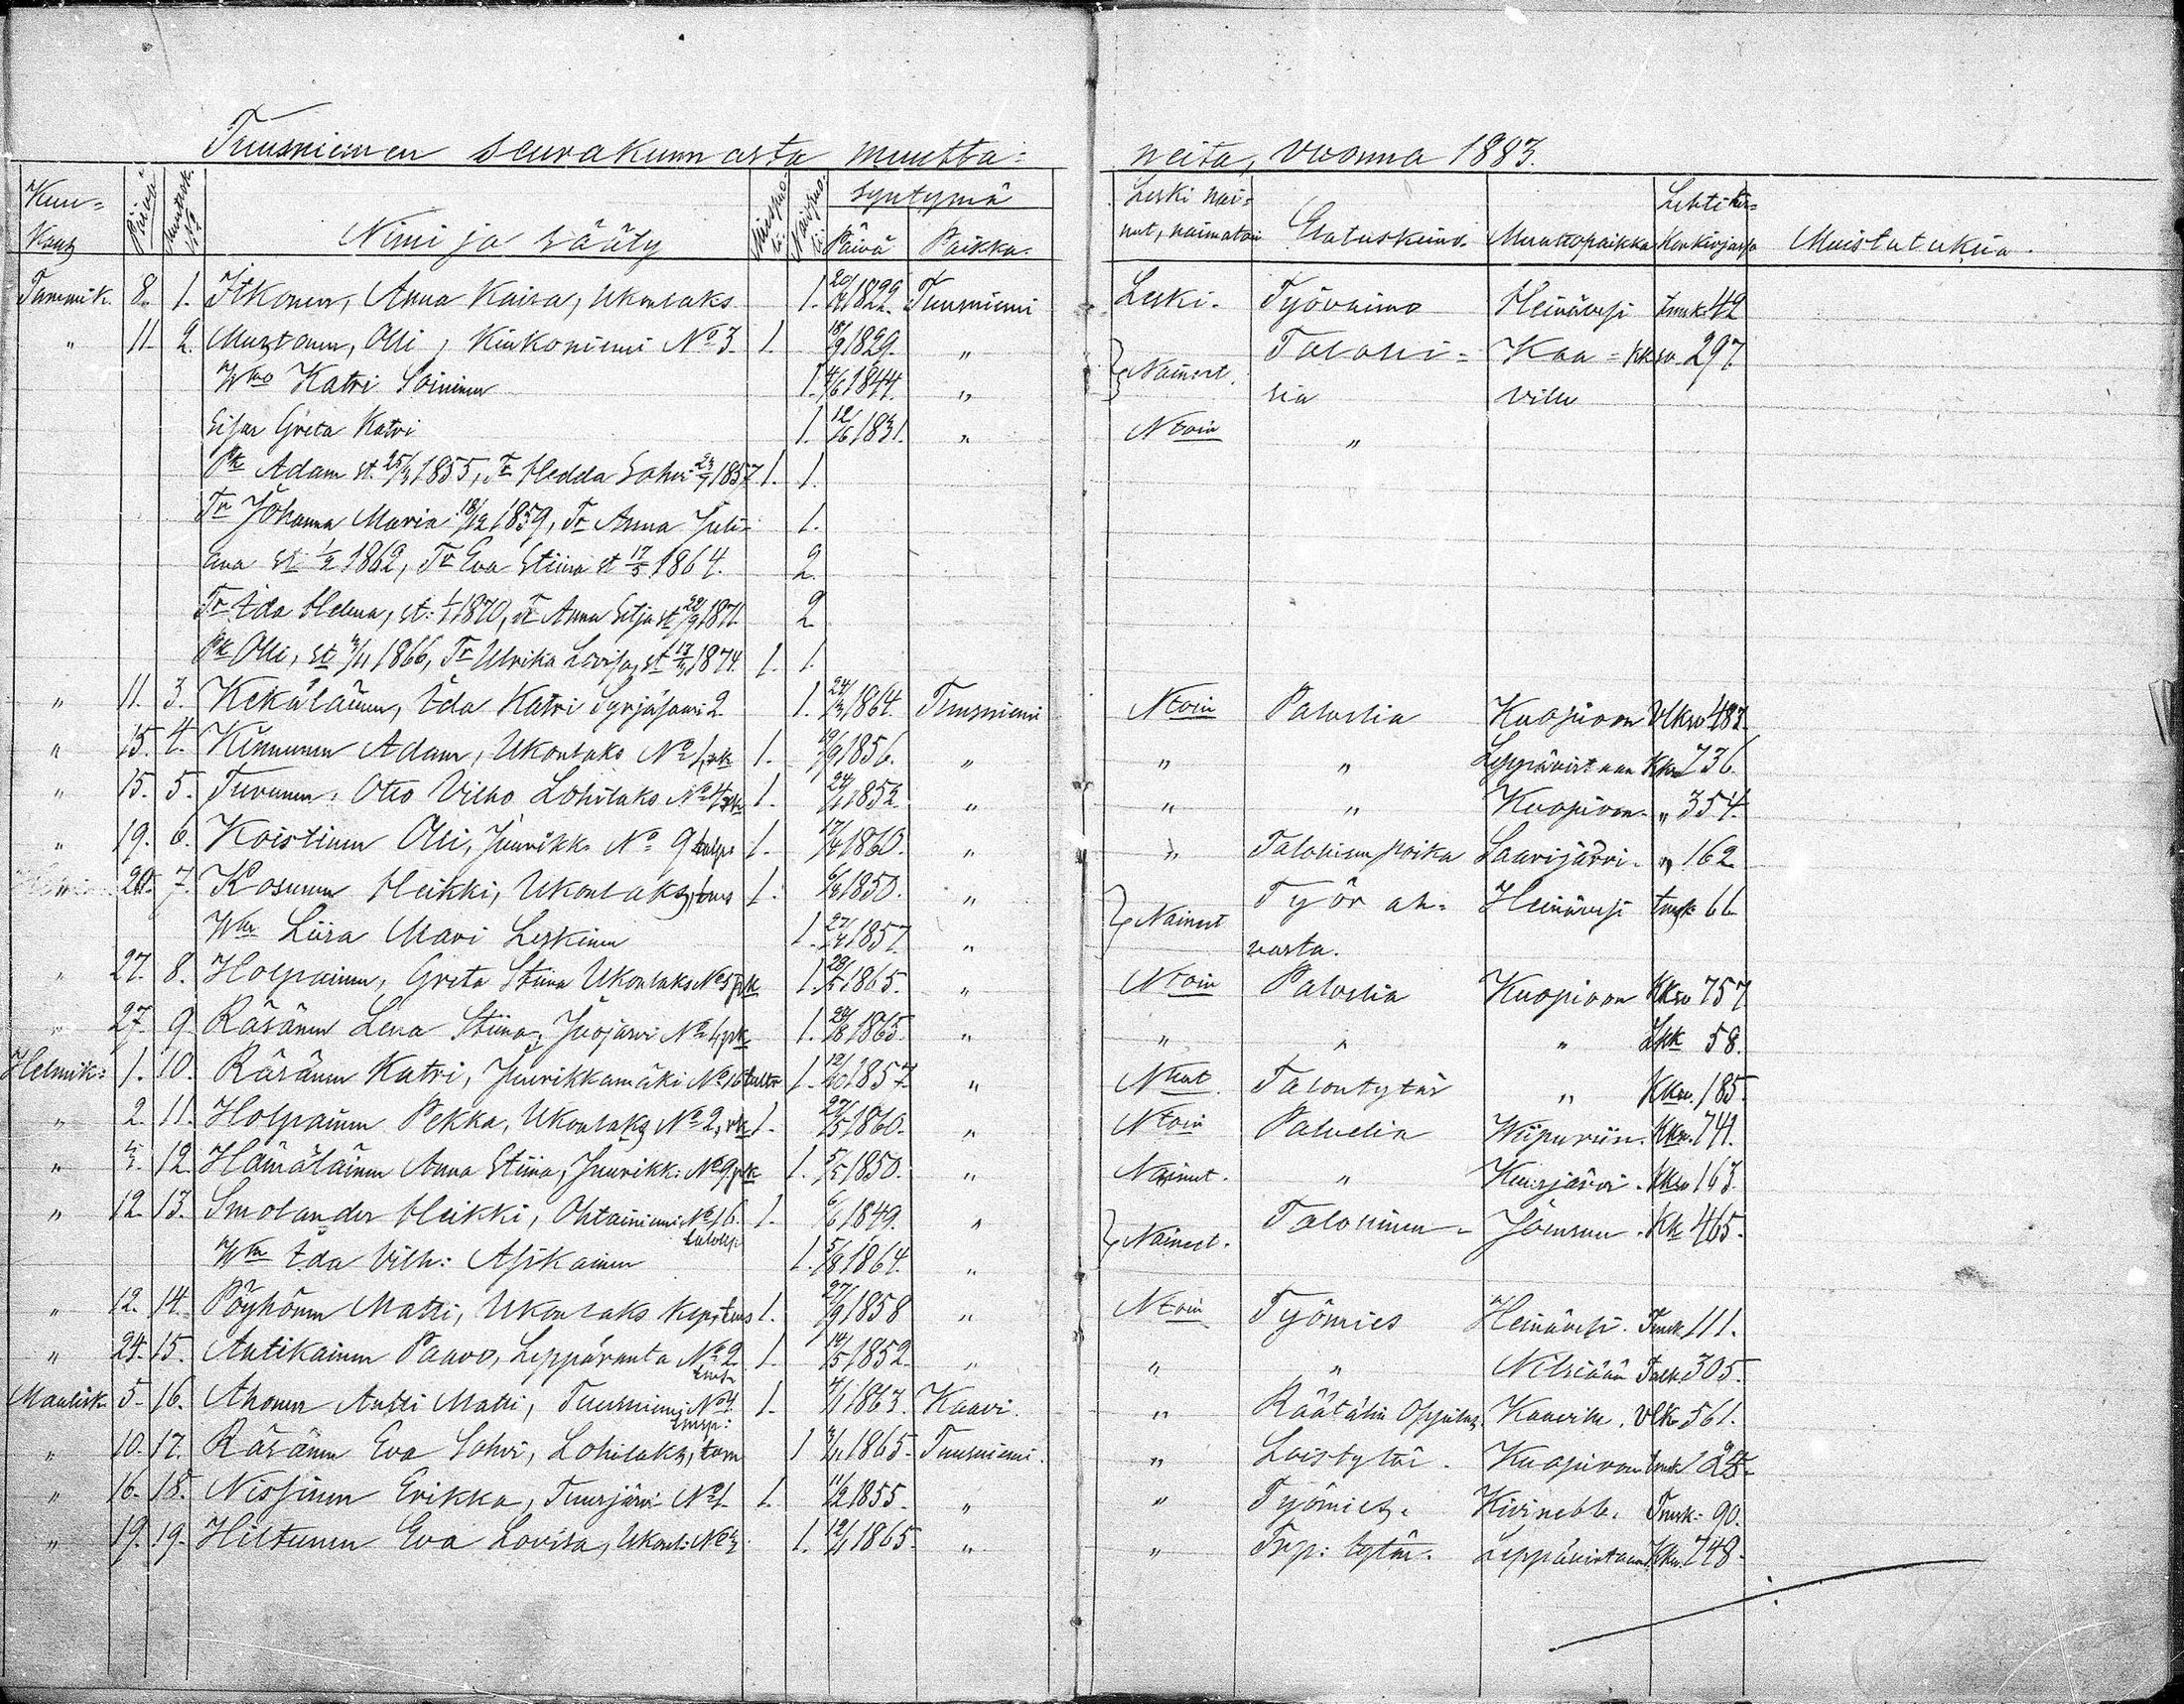 Tuusniemen seurakunnasta muutta= neita, vuonna 1883.
Kuu= kausi Päivä Muutosk. № Nimi ja sääty Miespuo. Naispuo. Syntymä Päivä Paikka. Leski nai= nut, naimatoin Elatuskeino. Muuttopaikka Lehti kir= konkirjassa Muistutuksia.
Tammik. 8. 1. Itkonen, Anna Kaisa, Ukonlaks 1. 1822. Tuusniemi Leski. Työvaimo Heinävesi tmk. 42
" 11. 2. Mustonen, Olli, Kiukoniemi № 3. 1. 18/9 1829. " Nainut. Talolli= Kaa= kkso 297.
Wmo Katri Soininen 1. 4/6 1844. " sia ville
Sisar Greta Katri 1. 12/6 1831. " Ntoin "
Pk Adam st. 25/3 1855, Tr Hedda Sohvi 23/7 1857 1. 1.
Tr Johanna Maria 18/12 1859, Tr Anna Juli= 1.
ana st 1/2 1862, Tr Eva Stiina st 17/5 1864. 2.
Tr Ida Helena, st: 1/1 1870, Tr Anna Silja st 22/9 1871. 2
Pk Olli, st 3/11 1866, Tr Ulrika Lovisa, st 1874. 1. 1.
" 11. 3. Kekäläinen, Ida Katri Syrjäsaari 2. 1. 24/3 1864. Tuusniemi Ntoin Palvelia Kuopioon Vlkso 483.
" 15. 4. Kinnunen Adam, Ukonlaks № 1, rk 1. 19/9 1856. " " " Leppävirt aan Kkso 736.
" 15. 5. Turunen, Otto Vilho Lohilaks № 4 rk 1. 24/1 1852. " " " Kuopioon. " 354.
" 19. 6. Koistinen Olli, Juurikk. № 9 talp: 1. 17/4 1860. " " Talollisen poika Saarijärvi. " 162
20. 7. Kosunen Heikki, Ukonlaks, tms 1. 6/4 1850. " Nainut Työr ah= Heinävesi tmsk. 66
Wmo Liisa Mari Leskinen 1. 27/4 1857. " rasta.
" 27. 8. Holpainen, Greta Stiina Ukonlaks № 5 pk 1. 28/5 1865. " Ntoin Palvelia Kuopioon Kkso 757
" 27. 9. Räsänen Lena Stiina, Juojärvi № 4, pk 1. 24/8 1865. " " " " Lkk 58.
Helmik: 1. 10. Räsänen Katri, Juurikkamäki № 16 taltr 1. 12/10 1857. " Nnut. Talontytär " Kkso. 185.
" 2. 11. Holpainen Pekka, Ukonlaks № 2, rk 1. 27/5 1860. " Ntoin Palvelia Wiipuriin. Kkso. 741.
" 12. Hämäläinen Anna Stiina, Juurikk: № 9. pk 1. 5/5 1850. " Nainut. " Kuusjärvi. Kkso 163.
" 12. 13. Smolander Heikki, Ohtainiemi № 16. talollp 1. 6/6 1849. " Nainut. Talollinen Jömsun. Kk 465.
Wmo Ida Vilh: Asikainen 1. 5/8 1864. "
" 12. 14. Pöyhönen Matti, Ukonlaks Kep, tms 1. 27/9 1858 " Ntoin Työmies Heinävesi. Tmsk 111.
" 24. 15. Antikainen Paavo, Leppäranta № 2. tms 1. 14/5 1852. " " " Nilsiään Talk. 305.
Maalisk. 5. 16. Ahonen Antti Matti, Tuusniemi № 4. tmsp: 1. 4/1 1863. Kaavi. " Räätälin Oppilas Kaaville. Vlk. 561.
" 10. 17. Räsänen Eva Sohvi, Lohilaks, 1 3/4 1865. Tuusniemi. " Loistytär. Kuopioon tmsk 125.
" 16. 18. Nissinen Erikka, Tuusjärvi № 1. 1. 11/2 1855. " " Työmies. Kivinebb. Tmsk. 90.
" 19. 19. Hiltunen Eva Lovisa, Ukonl: № 3. 1. 12/1 1865. " " Tsp: tytär. Leppävirtaan Kkso. 748.